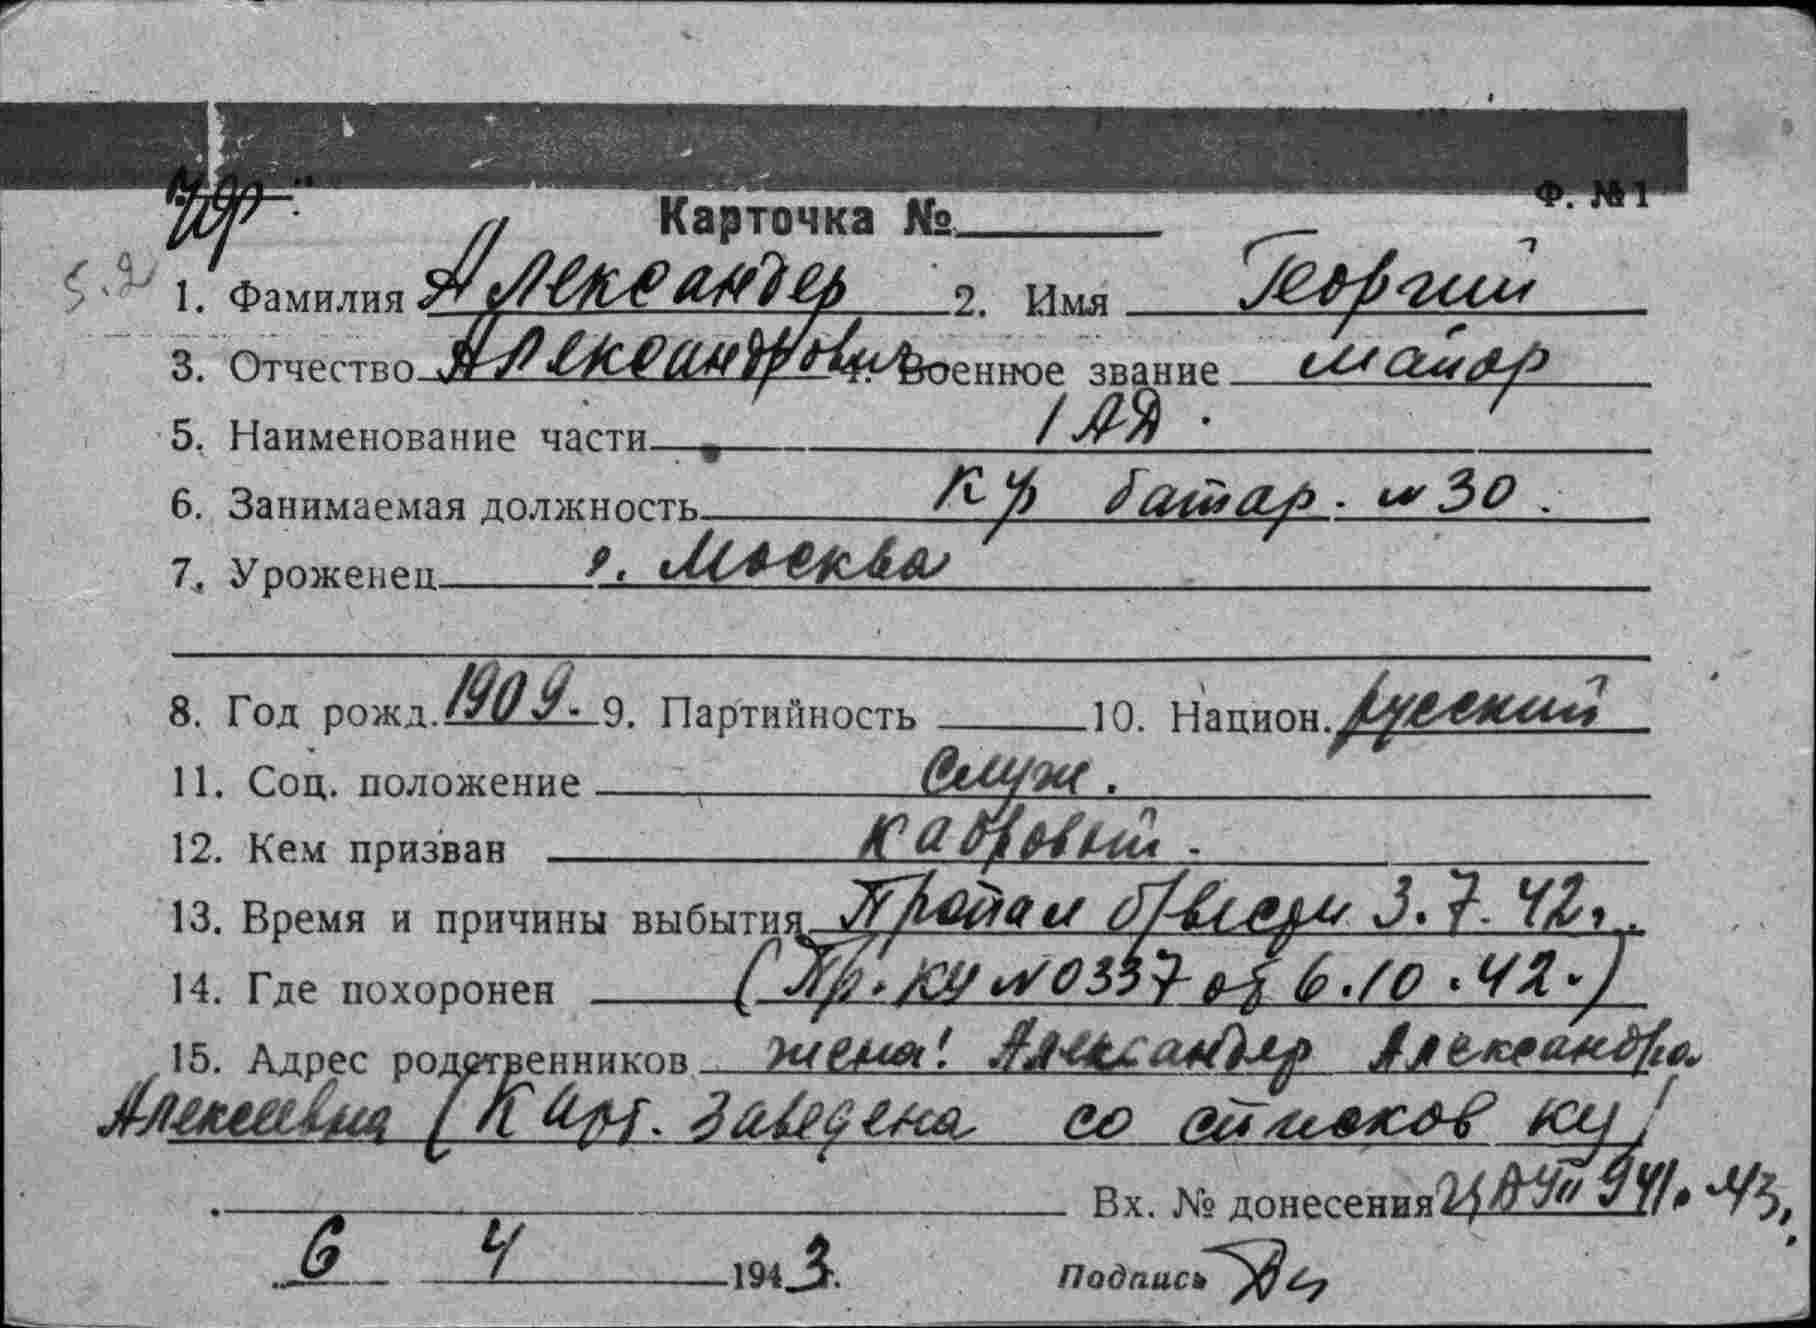 Ф. №1
Карточка №
1. Фамилия Александер 2. Имя Георгий
3. Отчество Александрович 4. Военное звание майор
5. Наименование части 1 АД.
6. Занимаемая должность К-р батар. № 30.
7. Уроженец г. Москва
8. Год рожд. 1909. 9. Партийность 10. Национ. русский
11. Соц. положение Служ.
12. Кем призван кадровый.
13. Время и причины выбытия Пропал б/вести 3.7.42г.
14. Где похоронен (Пр. КУ № 0337 от 6.10.42.)
15. Адрес родственников жена: Александер Александра
Алексеевна (Карт. заведена со списков КУ)
Вх. № донесения 941. 43.
6 4 1943.
Подпись